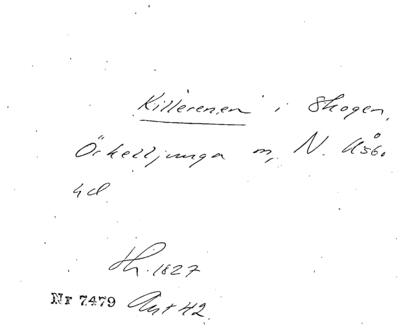 Killerenen i Skogen,
Örkelljunga m, N. Åsb.
hd
th. 1827
Nr 7479 Ant 42.